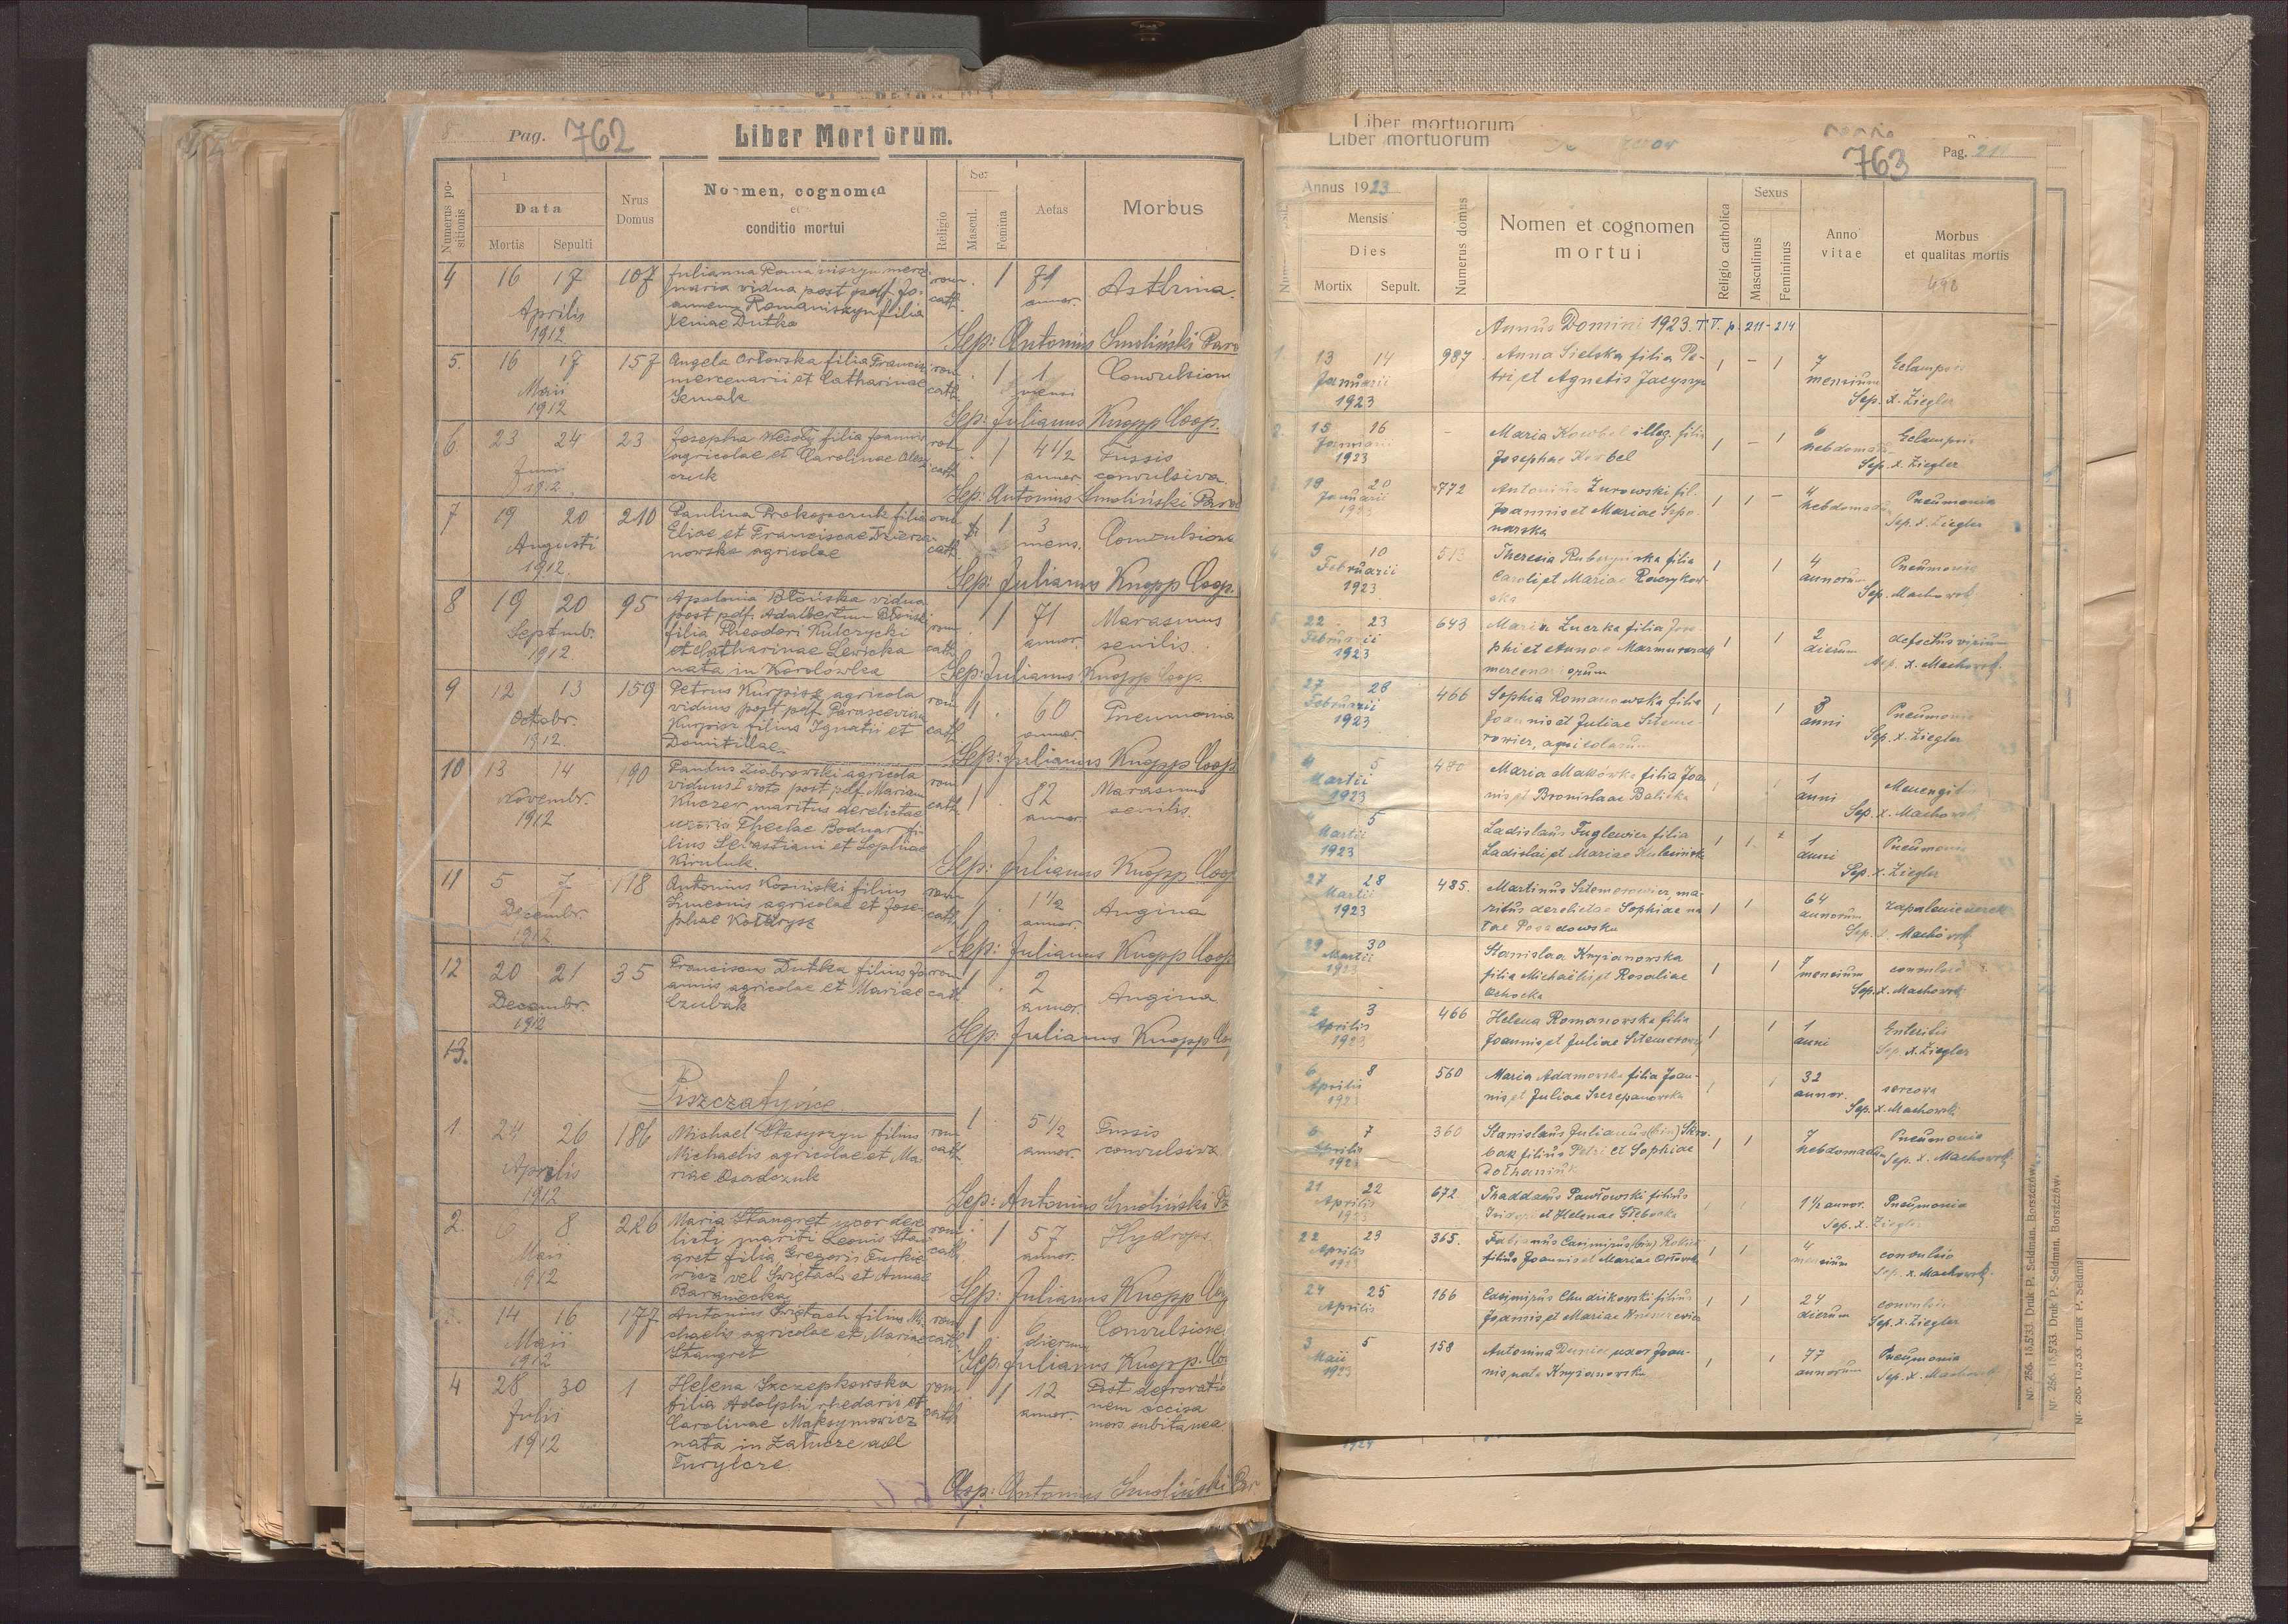 Pag. 762
Liber Mortuorum.
Numerus positionis
Data
Mortis Sepulti
Nrus Domus
Nomen, cognomen
et
conditio mortui
Religio
Mascul.
Femina
Aetas
Morbus
4 16 17 107 Julianna Romaniszyn merce
naria vidua post pdf. Jo-
annem Romaniszyn filia
Xeniae Dutka
Aprilis
1912
rom. cath. 1 annor. Asthma.
Sep: Antonius Smoliński Paro
5. 16 17 157 Angela Orłowska filia Francisci
mercenarii et Catharinae
Semak
Maii
1912
rom. cath. 1 1 mensi Convulsione
Sep: Julianus Knopp Coop.
6 23 24 23 Josepha Wesoły filia Joannis
agricolae et Carolinae Olesz
czuk
Junii
1912
rom. cath. 1 4 1/2 annor. Tussis
convulsiva.
Sep: Antonius Smoliński Paro
7 19 20 210 Paulina Prokopczuk filia
Eliae et Franciscae
nowska agricolae
Augusti
1912.
rom. cath. 1 3 mens. Convulsione
Sep: Julianus Knopp Coop.
8 19 20 95 Apolonia Błońska vidua
post pdf. Adalbertum Błoński
filia Theodori Kulczycki
et Catharinae Lewicka
nata in Korolówka
Septmb.
1912
rom. cath. 1 71 annor. Marasmus
senilis.
Sep: Julianus Knopp Coop.
9 12 13 159 Petrus Kurpisz agricola
viduus post pdf. Parasceviam
Kurpisz filius Ignatii et
Domitillae
Octobr.
1912
rom. cath. 1 60 annor. Pneumonia
Sep: Julianus Knopp Coop
10 13 14 190 Paulus Ziobrowski agricola
viduus I voto post pdf. Mariam
Kuczer maritus derelictae
uxoris Theclae Bodnar fi-
lius Sebastiani et Sophiae
Kiruluk
Novembr.
1912
rom. cath. 1 82 annor. Marasmus
senilis.
Sep: Julianus Knopp Coop
11 5 7 118 Antonius Kosiński filius
Simeonis agricolae et Jose-
phae Kołdrysz
Decembr.
1912
rom. cath. 1 1 1/2 annor. Angina
Sep: Julianus Knopp Coop
12 20 21 35 Franciscus Dutka filius Jo
annis agricolae et Mariae
Czubak
Decembr.
1912
rom. cath. 1 2 annor. Angina
Sep: Julianus Knopp Co
13.
Piszczatyńce
1. 24 26 186 Michael Stasyszyn filius
Michaelis agricolae et Ma
riae Osadczuk
Aprilis
1912
rom. cath. 1 5 1/2 annor. Tussis
convulsiva
Sep: Antonius Smoliński Pa
2. 6 8 226 Maria Stangret uxor dere
licti mariti Leonis Stan
gret filia Gregorii Turkie
wicz vel Świętach et Annae
Baraniecka
Maii
1912
rom. cath. 1 57 annor. Hydrops.
Sep: Julianus Knopp Coop
3. 14 16 177 Antonius Świętach filius Mi
chaelis agricolae et Mariae
Stangret
Maii
1912
rom. cath. 1 6 dierum Convulsione
Sep: Julianus Knopp. Co
4 28 30 1 Helena Szczepkowska
filia Adolphi rhedarii et
Carolinae Maksymowicz
nata in Załucze adl
Turylcze
Julii
1912
rom. cath. 1 12 annor. Post
nem occisa
mors subitanea
Sep: Antonius Smoliński Par
Liber mortuorum
Liber mortuorum
763
Pag. 211
Annus 1923
Mensis
Dies
Mortix Sepult.
Numerus domus
Nomen et cognomen
mortui
Religio catholica
Sexus
Masculinus
Femininus
Anno
vitae
Morbus
et qualitas mortis
498
Annus Domini 1923. T. V. p. 211-214
1. 13 14 987 Anna Sielska filia Pe-
tri et Agnetis Jacyszyn
Januarii
1923
1 - 1 7 mensium Eclampsis
Sep. X. Ziegler
2. 15 16 - Maria Kowbel illeg. filia
Josephae Kowbel
Januarii
1923
1 - 1 6 hebdomad. Eclampsis
Sep. X. Ziegler
3. 18 20 772 Antonius Żurowski fil.
Joannis et Mariae Szpo-
narska
Januarii
1923
1 1 - 4 hebdomadum Pneumonia
Sep. X. Ziegler
4. 9 10 513 Theresia filia
Caroli et Mariae Raczykow-
ska
Februarii
1923
1 1 4 annorum Pneumonia
Sep. Machowsk
5. 22 23 643 Maria Luczka filia Jose
phi et Annae
mercenariorum
Februarii
1923
1 1 2 dierum defectus virium
Sep. X. Machowsk.
27 28 466 Sophia Romanowska filia
Joannis et Juliae Szteme-
rowicz, agricolarum
Februarii
1923
1 1 3 anni Pneumonia
Sep. X. Ziegler
4 5 480 Maria Makówka filia Joan
nis et Bronislaae Balicka
Martii
1923
1 anni Menengit
Sep. X. Machowsk
4 5 Ladislaus Fuglewicz filia
Ladislai et Mariae Kulesińska
Martii
1923
1 1 1 anni Pneumonia
Sep. X. Ziegler
27 28 485. Martinus Sztemerowicz, ma-
ritus derelictae Sophiae na
tae Posadowska
Martii
1923
1 1 64 annorum zapalenie nerek
Sep. X. Machowsk
29 30 Stanislaa Krysanowska
filia Michaëlis et Rosaliae
Ochocka
Martii
1923
1 1 7 mensium convulsio
Sep. X. Machowsk
2 3 466 Helena Romanowska filia
Joannis et Juliae Sztemerowicz
Aprilis
1923
1 1 1 anni Enteritis
Sep. X. Ziegler
6 8 560 Maria Adamowska filia Joan-
nis et Juliae Szczepanowska
Aprilis
1923
1 1 32 annor. sercowa
Sep. X. Machowsk
6 7 360 Stanislaus Julianus (bin) Skro-
bak filius Petri et Sophiae
Dołhaniuk
Aprilis
1923
1 1 7 hebdomadum Pneumonia
Sep. X. Machowsk.
21 22 672. Thaddaeus Pawłowski filius
Isidori et Helenae Głębocka
Aprilis
1923
1 1/2 annor. Pneumonia
Sep. X. Ziegler
22 23 365. Fabianus Casimirus (bin)
filius Joannis et Mariae Orłowska
Aprilis
1923
1 1 4 mensium convulsio
Sep. X. Machowsk.
24 25 166 Casimirus Chudzikowski filius
Joannis et Mariae
Aprilis
1 1 24 dierum convulsio
Sep. X. Ziegler
3 5 158 Antonina uxor Joan-
nis, nata Krysanowska
Maii
1923
1 1 77 annorum Pneumonia
Sep. X. Machowsk
Nr. 256. 15,5'33. Druk P. Seldman. Borszczów.
Nr. 256. 15,5'33. Druk P. Seldman. Borszczów.
Nr. 256. 15,5'33. Druk P. Seldma
1924